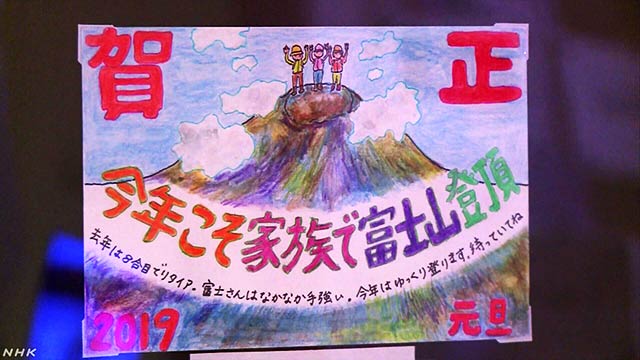 賀正
今年こそ家族で富士山登頂
去年は8合目でリタイア。富士さんはなかなか手強い。今年はゆっくり登ります。待っていてね
2019 元旦
NHK